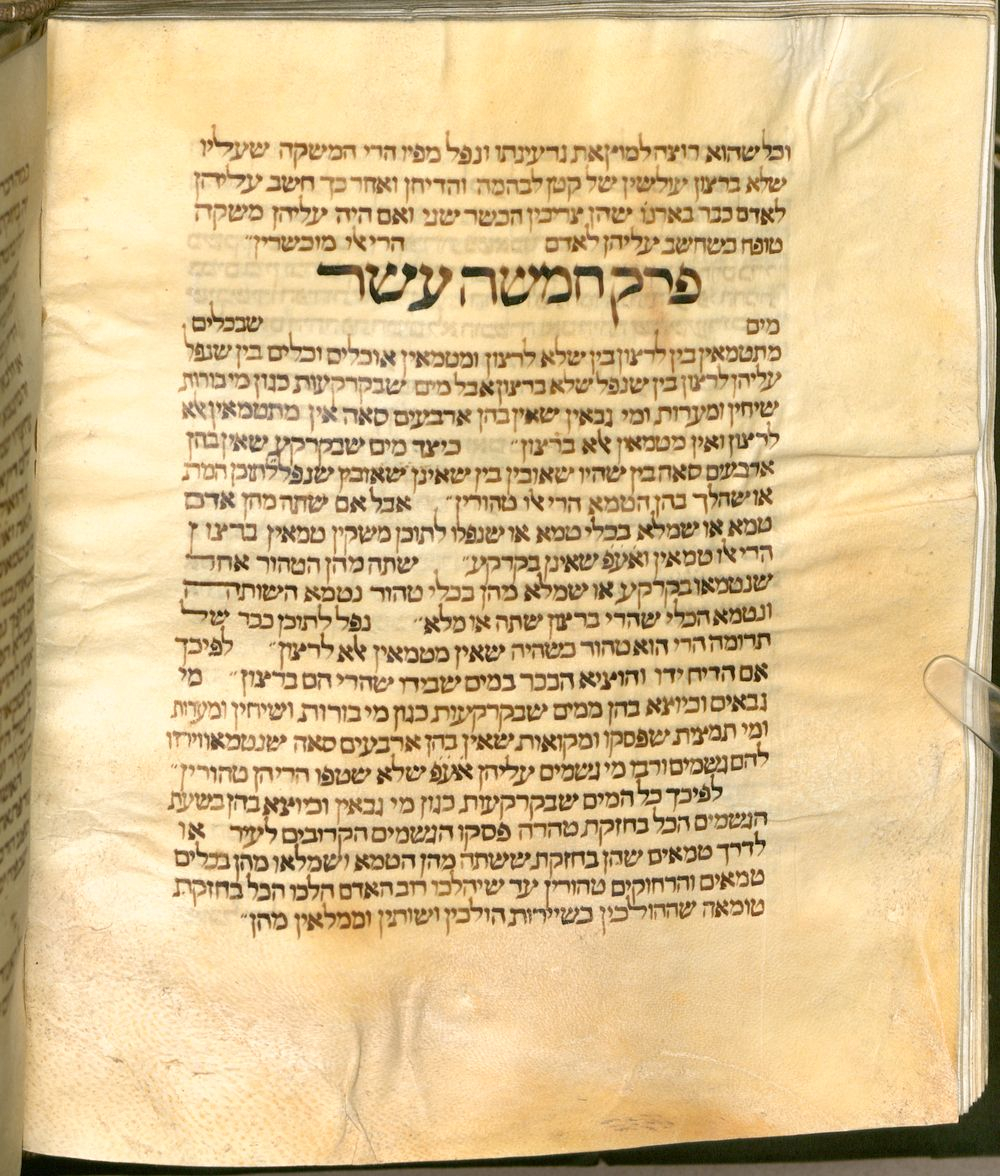 וכל שהוא רוצה למוץ את גרעינתו ונפל מפיו הרי המשקה שעליו
שלא ברצון עולשין של קטן לבהמה והדיחן ואחר כך חשב עליהן
לאדם כבר בארנו שהן צריכין הכשר שני ואם היה עליהן משקה
טופח כשחשב עליהן לאדם הרי אלו מוכשרין״
פרק חמשה עשר
מים שבכלים
מתטמאין בין לרצון בין שלא לרצון ומטמאין אוכלים וכלים בין שנפל
עליהן לרצון בין שנפל שלא ברצון אבל מים שבקרקעות כגון מי בורות
שיחין ומערות ומי גבאין שאין בהן ארבעים סאה אין מתטמאין אלא
לרצון ואין מטמאין אלא ברצון״ כיצד מים שבקרקע שאין בהן
ארבעים סאה בין שהיו שאובין בין שאינן שאובין שנפל לתוכן המת
או שהלך בהן הטמא הרי אלו טהורין״ אבל אם שתה מהן אדם
טמא או שמלא בכלי טמא או שנפלו לתוכן משקין טמאין ברצון
הרי אלו טמאין ואעפ שאינן בקרקע״ שתה מהן הטהור אחר
שנטמאו בקרקע או שמלא מהן בכלי טהור נטמא השותה
ונטמא הכלי שהרי ברצון שתה או מלא״ נפל לתוכן ככר של
תרומה הרי הוא טהור כשהיה שאין מטמאין אלא לרצון״ לפיכך
אם הדיח ידו והוציא הככר במים שבידו שהרי הם ברצון״ מי
גבאים וכיוצא בהן ממים שבקרקעות כגון מי בורות ושיחין ומערות
ומי תמצת שפסקו ומקואות שאין בהן ארבעים סאה שנטמאו וירדו
להם גשמים ורבו מי גשמים עליהן אעפ שלא שטפו הרי הן טהורין״
לפיכך כל המים שבקרקעות כגון מי גבאין וכיוצא בהן בשעת
הגשמים הכל בחזקת טהרה פסקו הגשמים הקרובים לעיר או
לדרך טמאים שהן בחזקת ששתה מהן הטמא ושמלאו מהן בכלים
טמאים והרחוקים טהורין עד שיהלכו רוב האדם הלכו הכל בחזקת
טומאה שההולכין בשיירות הולכין ושותין וממלאין מהן״